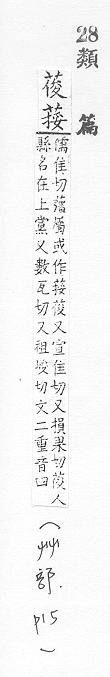 28
類篇
葰䔿
儒隹切蘤屬或作䔿葰又宣隹切又損果切葰人
縣名在上黨又數瓦切又祖峻切文二重音四
(艸部. p15)